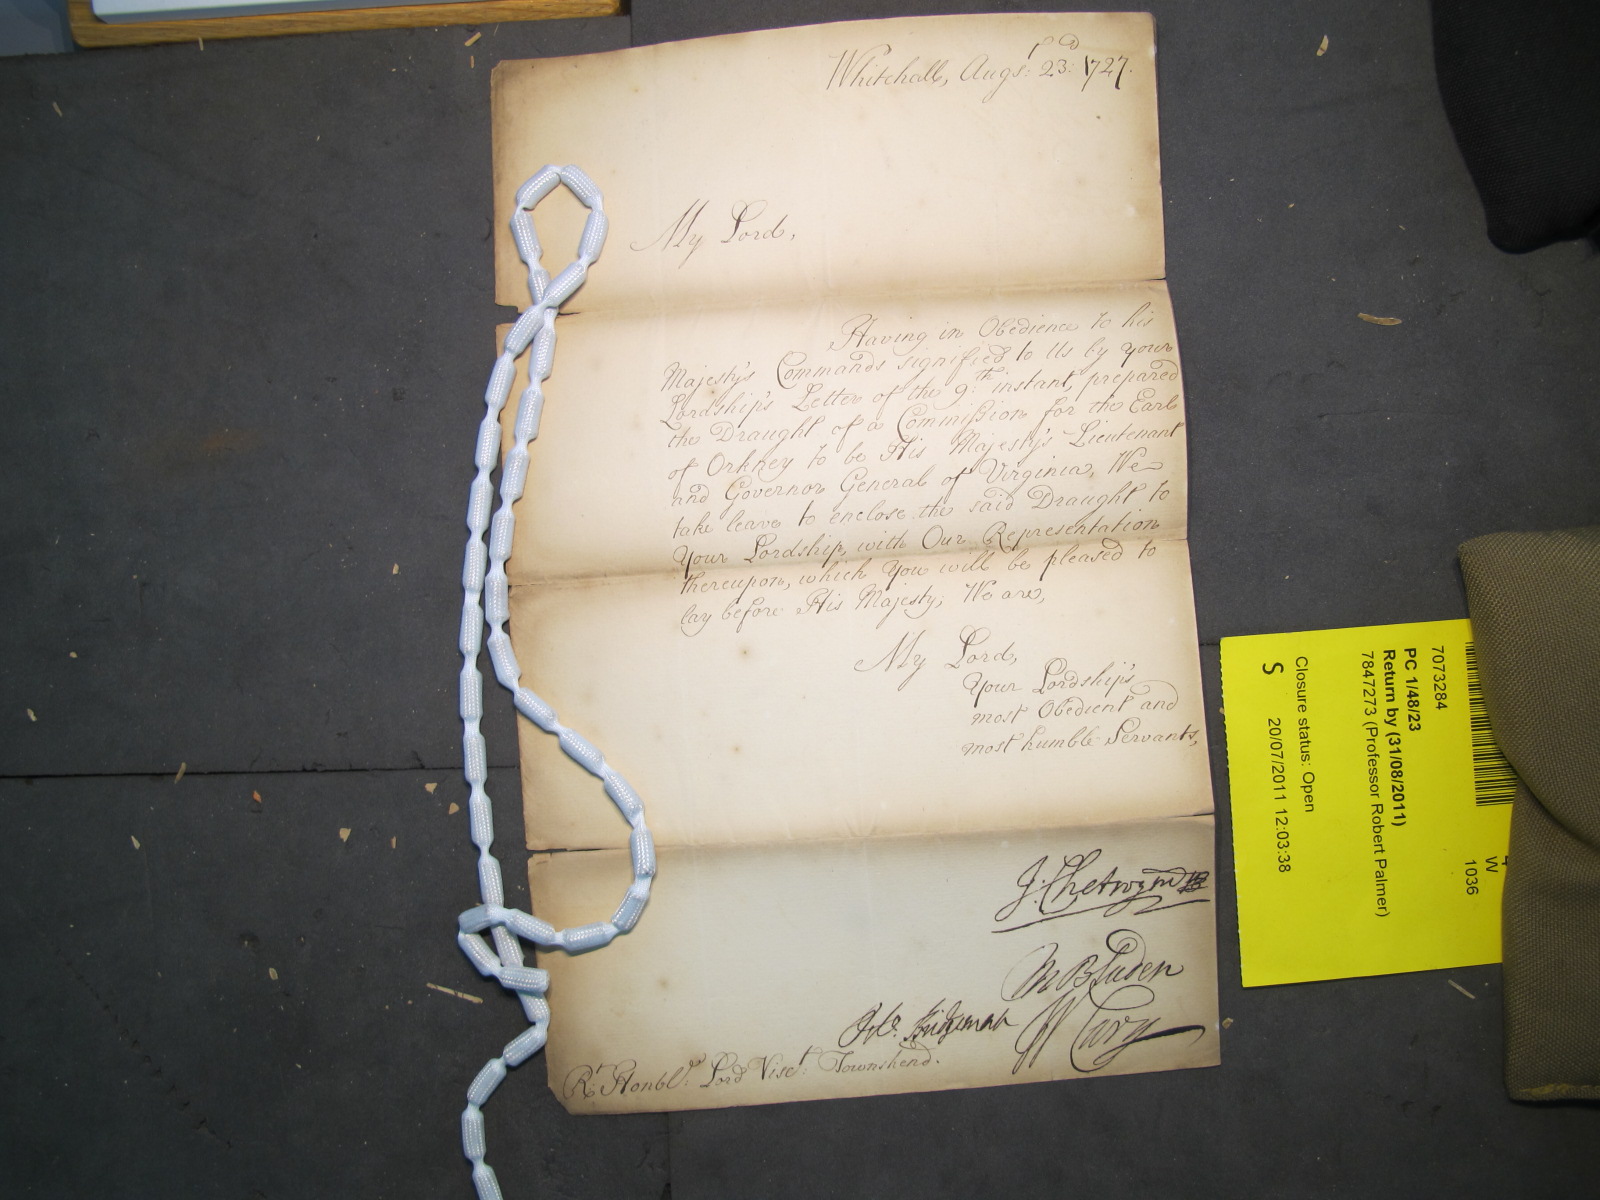 Whitehall, Augst: 23d: 1727.
My Lord,
Having in Obedience to his
Majesty's Commands signified to Us by your
Lordship's Letter of the 9th: instant, prepared
the Draught of a Commission for the Earl
of Orkney to be His Majesty's Lieutenant
and Governor General of Virginia, We
take leave to enclose the said Draught to
Your Lordship, with Our Representation
thereupon, which You will be pleased to
lay before His Majesty; We are,
My Lord,
Your Lordship's
most Obedient and
most humble Servants,
J: Chetwynd
M Bladen
Or: Bridgeman
W Cary
Rt: Honble: Lord Visct: Townshend.
7073284
PC 1/48/23
Return by (31/08/2011)
7847273 (Professor Robert Palmer)
Closure status: Open
S 20/07/2011 12:03:38
W
1036